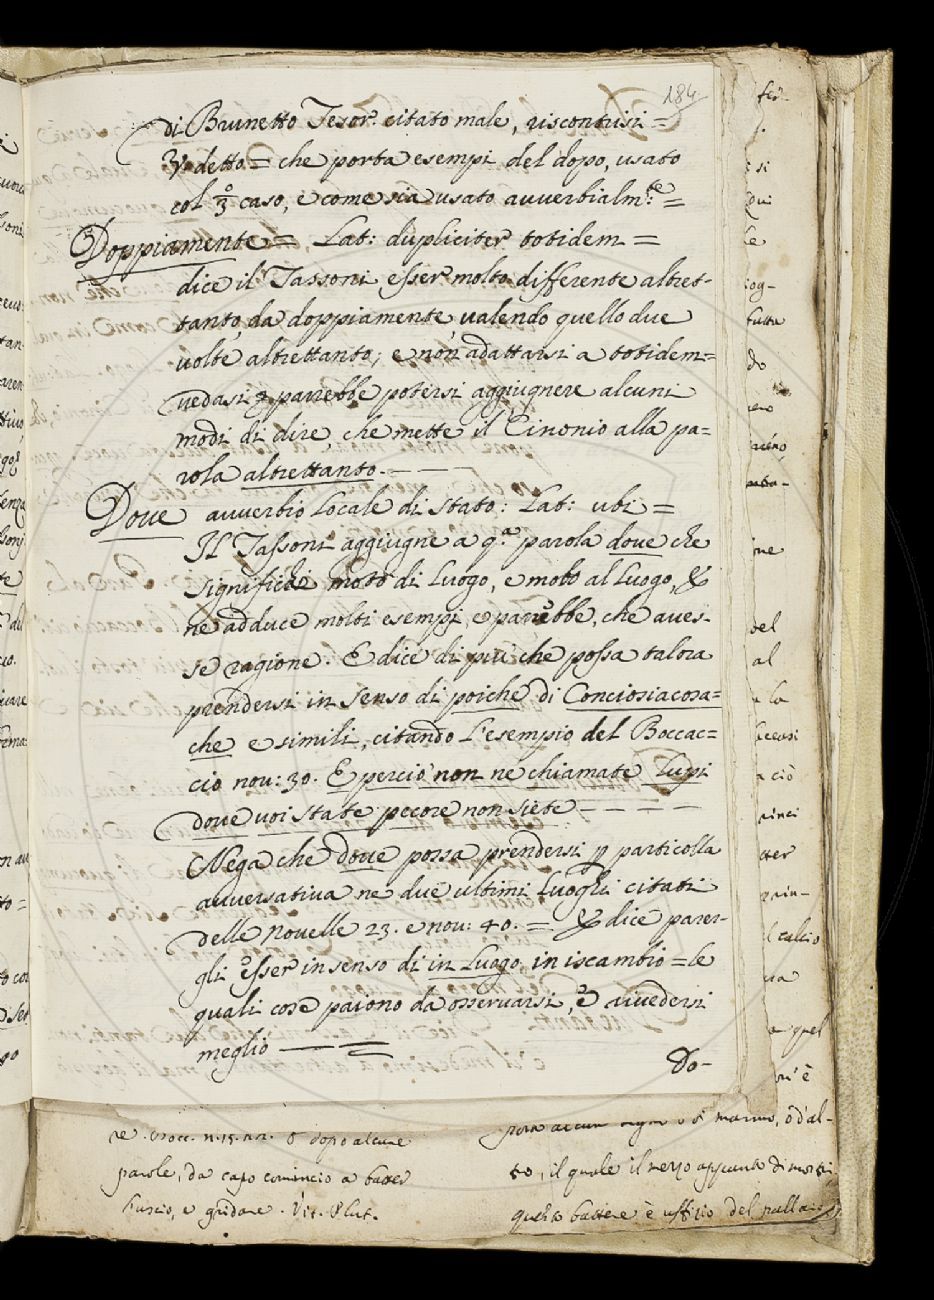 184
di Brunetto Tesor. citato male, riscontrisi =
detto = che porta esempi del dopo, usato
col 3.º caso, e come sia usato avverbialm.te =
Doppiamente = Lat: dupliciter totidem =
dice il Tassoni esser molto differente altret-
tanto, da doppiamente, valendo quello due
volte altrettanto; e non adattarsi a totidem =
vedasi parrebbe potersi aggiugnere alcuni
modi di dire, che mette il Cinonio alla pa=
rola altrettanto. — —
Dove avverbio locale di stato: Lat: ubi =
Il Tassoni aggiugne a q.a parola dove che
significhi moto di luogo, e moto al luogo, &
ne adduce molti esempj, e parrebbe, che aves-
se ragione. E dice di più che possa talora
prendersi in senso di poiche di Conciosiacosa=
che e simili, citando l'esempio del Boccac=
cio nov: 30. E perciò non ne chiamate Lupi
dove voi state pecore non siete — — — —
Nega che dove possa prendersi p particella
avversativa ne due ultimi luoghi citati
delle Novelle 23. e nov: 40. = & dice parer-
gli esser in senso di in luogo, in iscambio = le
quali cose paiono da osservarsi, e rivedersi
meglio — =
Do-
re. Bocc. n.15. O dopo alcune
parole, da capo comincio a batter
l'uscio, e gridare. Vit. Plut.
marmo, ò d'al-
to, il quale il mezo appunto di
questo battere è uffizio del